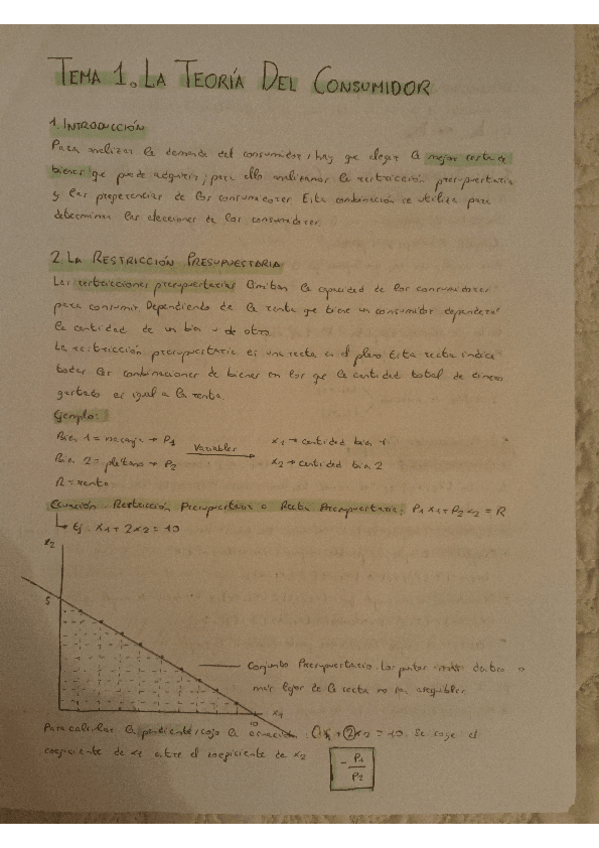 TEMA 1. LA TEORÍA DEL CONSUMIDOR
1. INTRODUCCIÓN
Para analizar la demanda del consumidor, hay que elegir la mejor cesta de
bienes que puede adquirir; para ello analizamos la restricción presupuestaria
y las preferencias de los consumidores. Esta combinación se utiliza para
determinar las elecciones de los consumidores.
2. LA RESTRICCIÓN PRESUPUESTARIA
Las restricciones presupuestarias limitan la capacidad de los consumidores
para consumir. Dependiendo de la renta que tiene un consumidor dependerá
la cantidad de un bien u de otro.
La restricción presupuestaria es una recta en el plano. Esta recta indica
todas las combinaciones de bienes en los que la cantidad total de dinero
gastado es igual a la renta.
Ejemplo:
Bien 1 = naranja → P1 Variables x1 → cantidad bien 1
Bien 2 = plátano → P2 x2 → cantidad bien 2
R = renta
Ecuación. Restricción Presupuestaria o Recta Presupuestaria: P1 x1 + P2 x2 = R
Ej. x1 + 2x2 = 10
x2
5
Conjunto Presupuestario. Los puntos dentro o
más lejos de la recta no son asequibles.
10 x1
Para calcular la pendiente, cojo la ecuación: 1x1 + 2x2 = 10. Se coge el
coeficiente de x1 entre el coeficiente de x2
- P1
P2